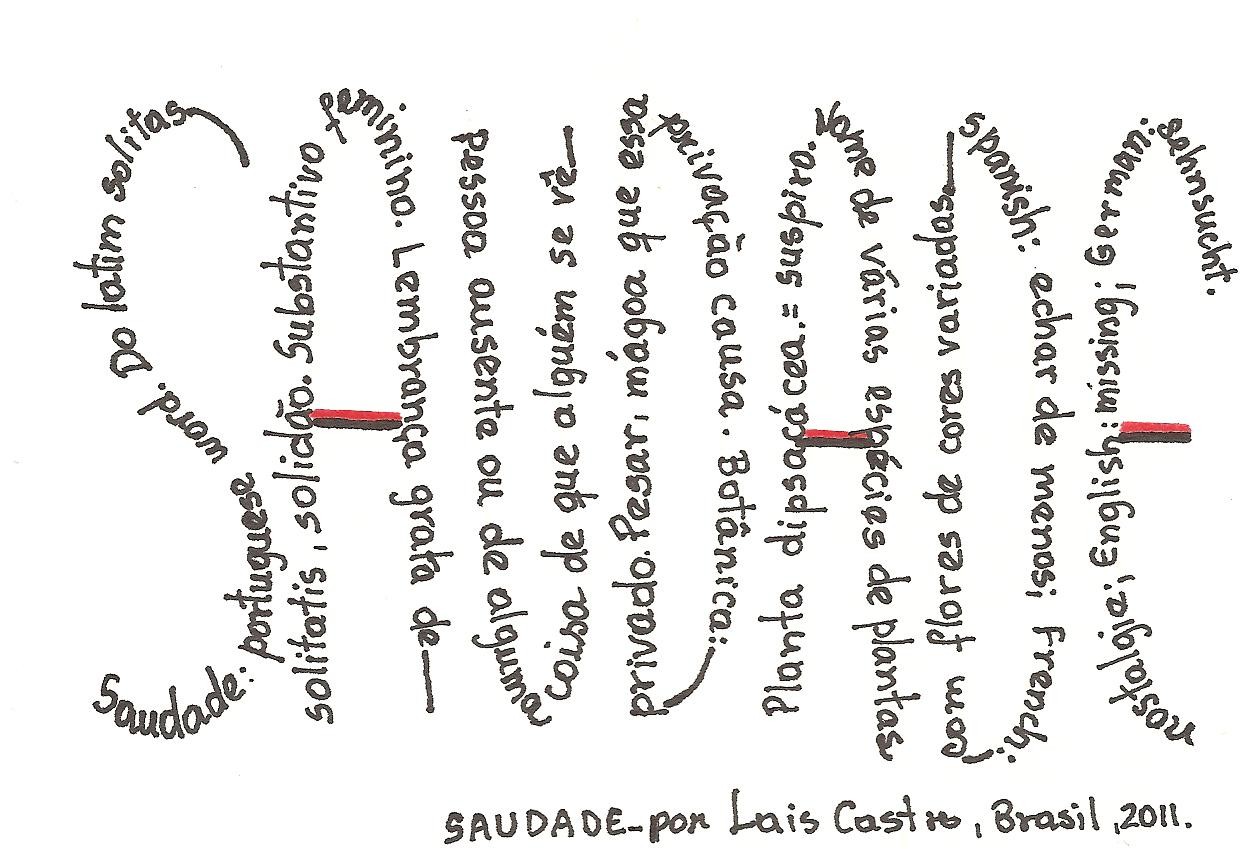 Saudade: portuguese word. Do latim solitas
solitatis, solidão. Substantivo feminino. Lembrança grata de
pessoa ausente ou de alguma coisa de que alguém se vê
privado. Pesar, mágoa que essa privação causa. Botânica:
Planta dipsacácea. = suspiro. Nome de várias espécies de plantas
com flores de cores variadas. Spanish: echar de menos; French:
nostalgia; English: missing; German: sehnsucht.
SAUDADE - por Lais Castro, Brasil, 2011.